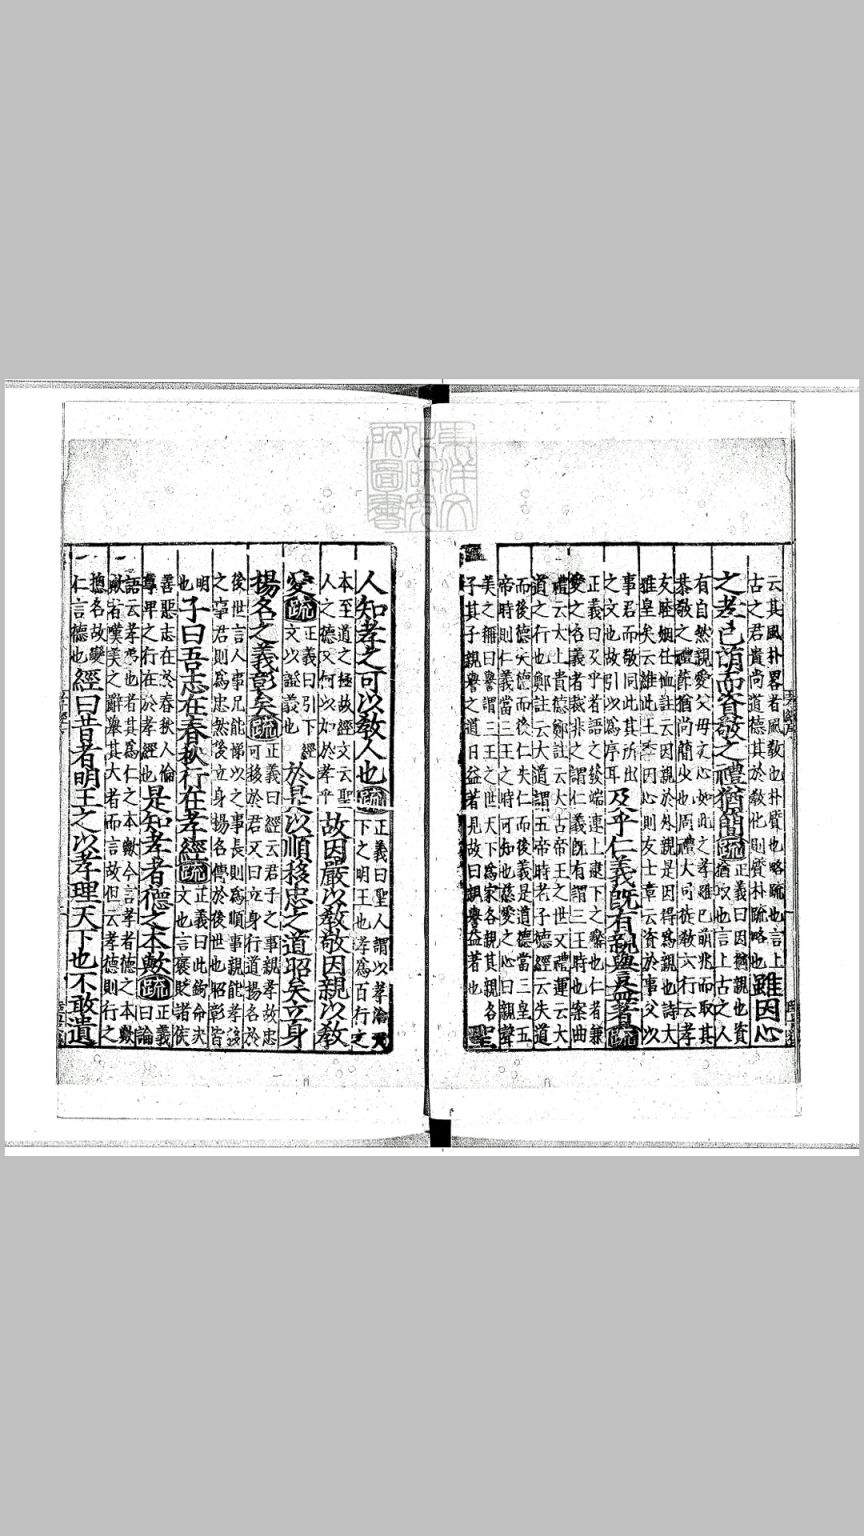 東洋文
化研究
所圖書
云其風朴畧者風教也朴質也略疏也言上
古之君貴尚道德其於教化則質朴疏略也
雖因心
之孝已萌而資敬之禮猶簡疏
正義曰因猶親也資
猶取也言上古之人
有自然親愛父母之心如此之孝雖已萌兆而取其
恭敬之禮節猶尚簡少也周禮大司徒教六行云孝
友睦姻任恤註云因親於外親是因得爲親也詩大
雅皇矣云維此王季因心則友士章云資於事父以
事君而敬同此其所出
之文也故引以爲序耳
及乎仁義既有親譽益著疏
正義曰及乎者語之發端連上逮下之辭也仁者兼
愛之名義者裁非之謂仁義既有謂三王時也案曲
禮云太上貴德鄭註云大古帝王之世又禮運云大
道之行也鄭註云大道謂五帝時老子德經云失道
而後德失德而後仁失仁而後義是道德當三皇五
帝時則仁義當三王之時可知也慈愛之心曰親聲
美之稱曰譽謂三王之世天下爲家各親其親各
子其子親譽之道日益著見故曰親譽益著也
聖
人知孝之可以教人也疏
正義曰聖人謂以孝治天
下之明王也孝爲百行之
本至道之極故經文云聖
人之德又何以加於孝乎
故因嚴以教敬因親以教
愛疏
正義曰引下經
文以證義也
於是以順移忠之道昭矣立身
揚名之義彰矣疏
正義曰經云君子之事親孝故忠
可移於君又曰立身行道揚名於
後世言人事兄能悌以之事長則爲順事親能孝移
之事君則爲忠然後立身揚名傳於後世也昭彰皆
明
也
子曰吾志在春秋行在孝經疏
正義曰此鉤命決
文也言褒貶諸侯
善惡志在於春秋人倫
尊卑之行在於孝經也
是知孝者德之本歟疏
正義
曰論
語云孝悌也者其爲仁之本歟今言孝者德之本歟
歟者嘆美之辭舉其大者而言故但云孝德則行之
摠名故變
仁言德也
經曰昔者明王之以孝理天下也不敢遺